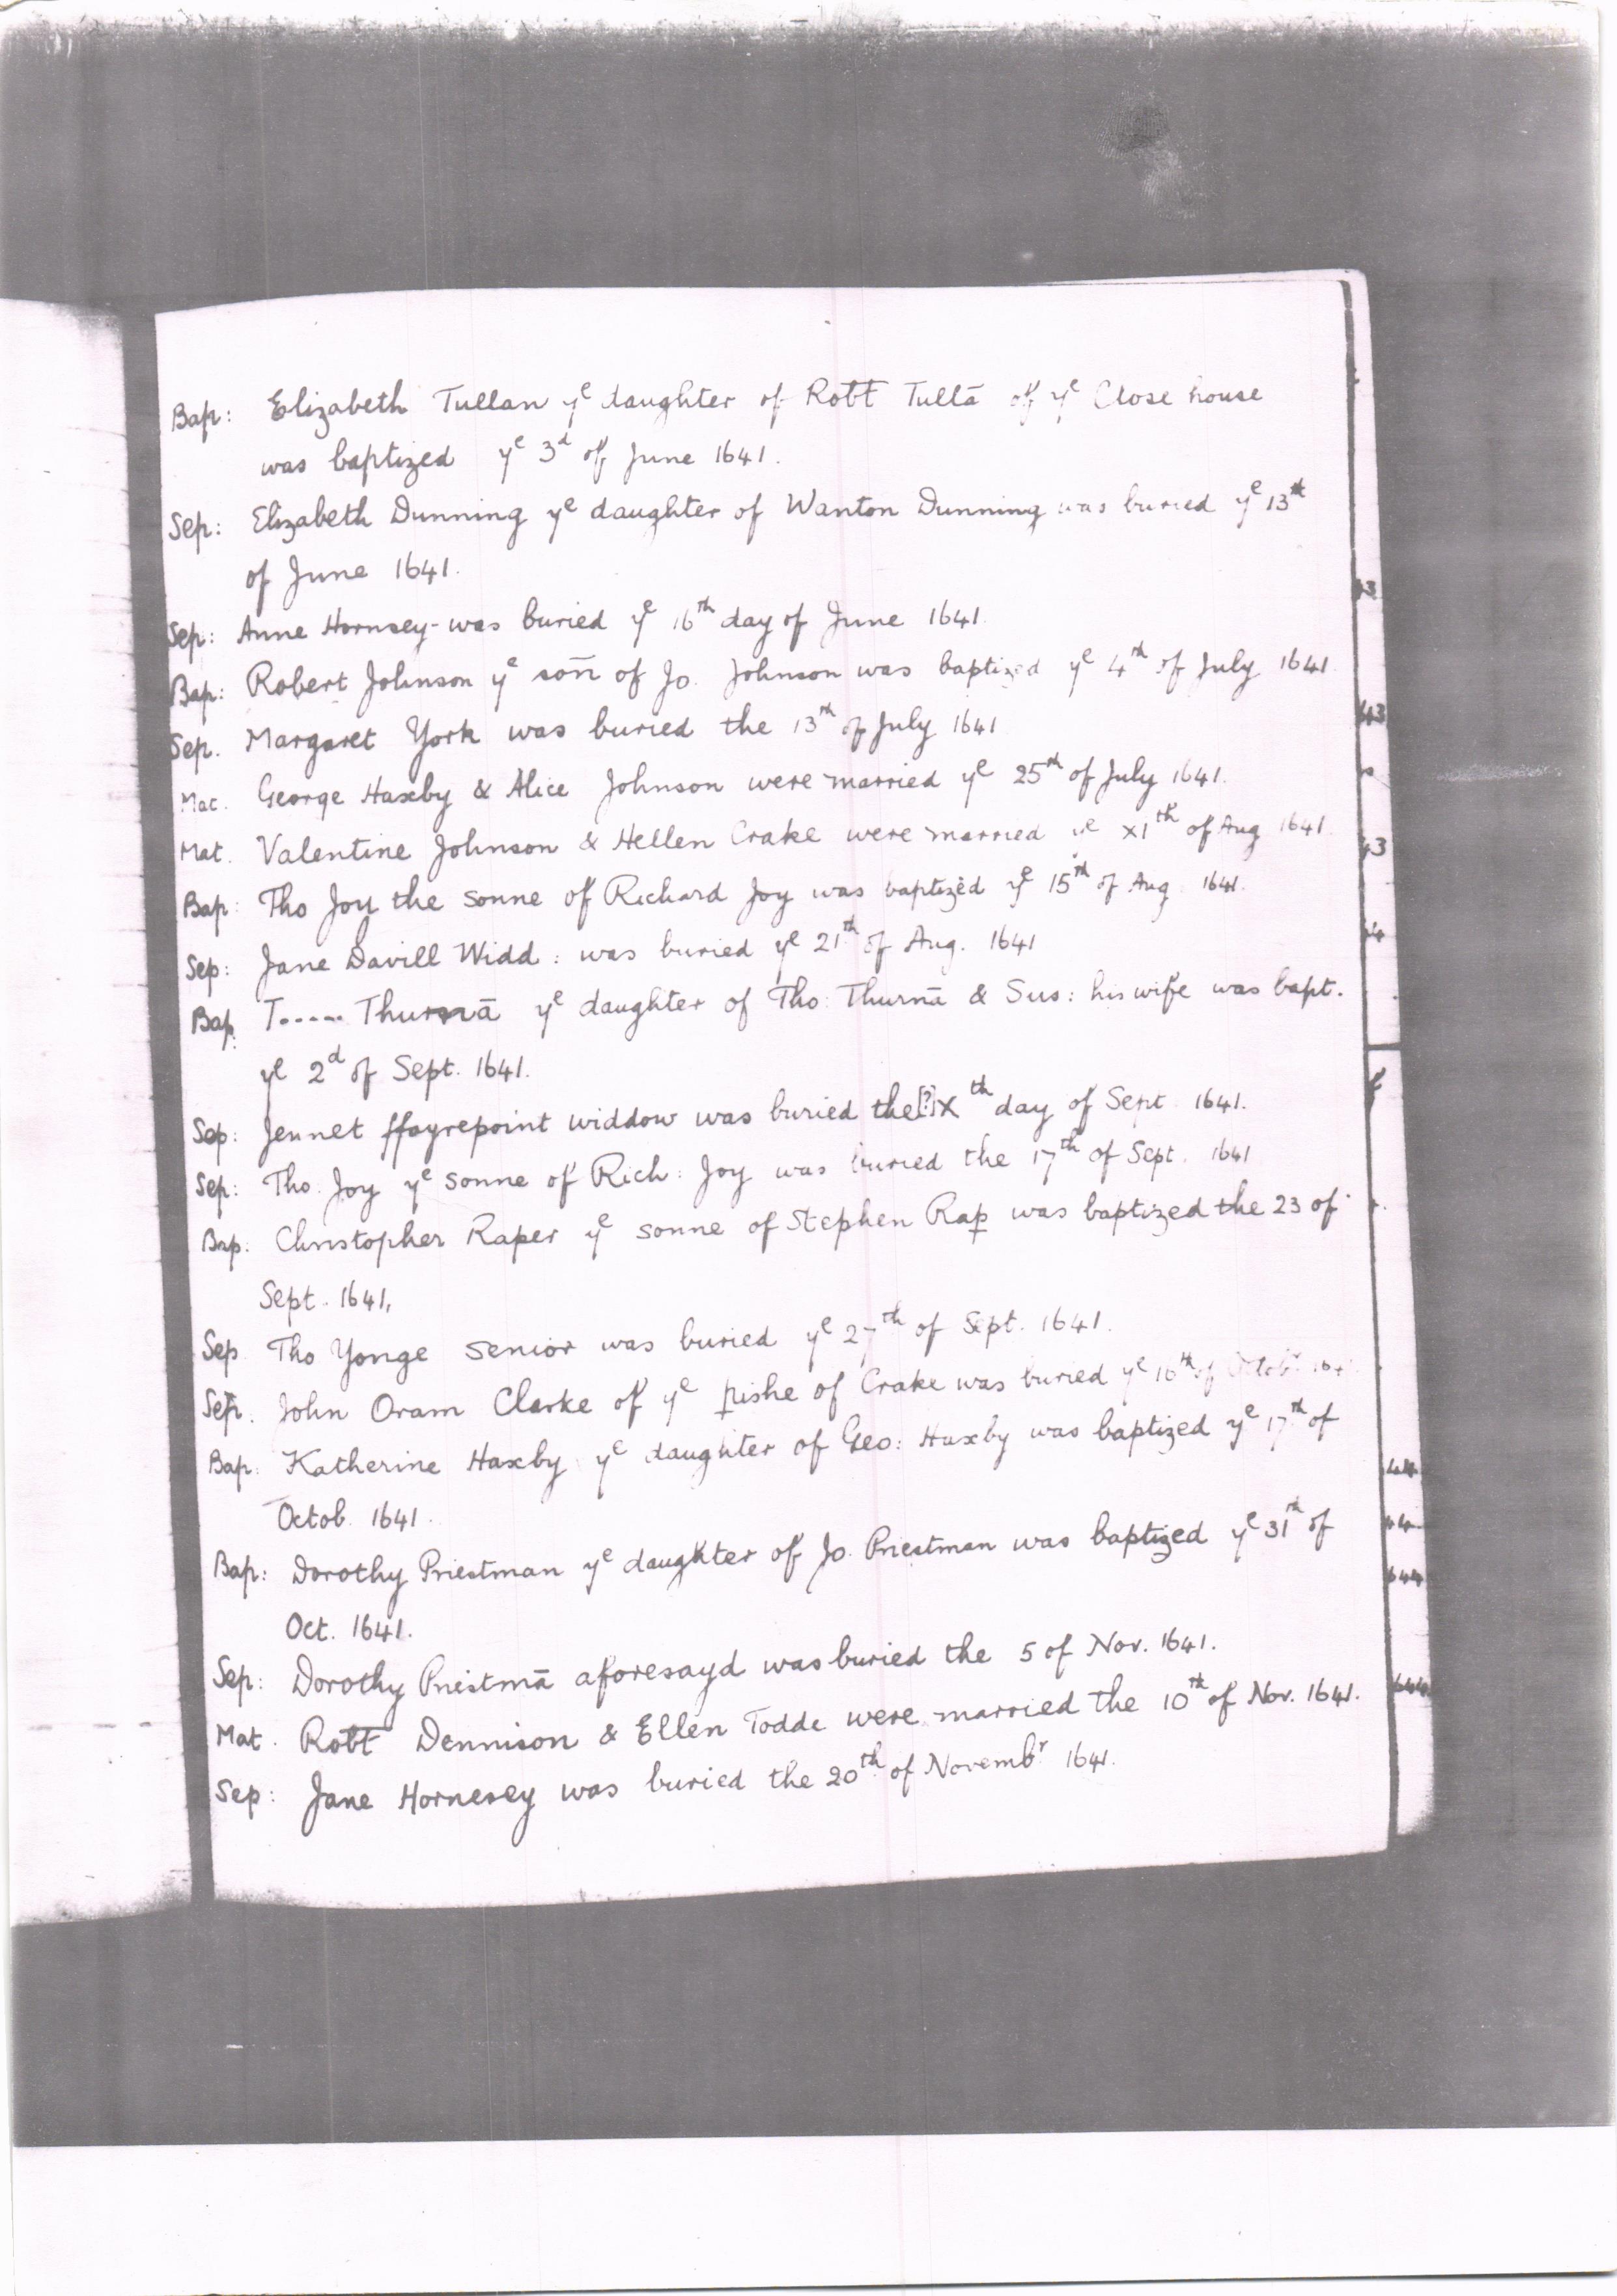 Bap: Elizabeth Tullan yᵉ daughter of Robt Tullā of yᵉ Close house
was baptized yᵉ 3ᵈ of June 1641.
Sep: Elizabeth Dunning yᵉ daughter of Wanton Dunning was buried yᵉ 13ᵗʰ
of June 1641.
Sep: Anne Hornsey-was buried yᵉ 16ᵗʰ day of June 1641
Bap: Robert Johnson yᵉ son̄ of Jo. Johnson was baptized yᵉ 4ᵗʰ of July 1641
Sep. Margaret York was buried the 13ᵗʰ of July 1641
Mat. George Haxby & Alice Johnson were married yᵉ 25ᵗʰ of July 1641.
Mat. Valentine Johnson & Hellen Crake were married yᵉ x1ᵗʰ of Aug 1641.
Bap: Tho Joy the sonne of Richard Joy was baptized yᵉ 15ᵗʰ of Aug. 1641.
Sep: Jane Davill Widd: was buried yᵉ 21ᵗʰ of Aug. 1641
Bap. T..... Thurnā yᵉ daughter of Tho: Thurnā & Sus: his wife was bapt.
yᵉ 2ᵈ of Sept. 1641.
Sep: Jennet ffayrepoint widdow was buried the [?]ixᵗʰ day of Sept. 1641.
Sep: Tho. Joy yᵉ sonne of Rich: Joy was buried the 17ᵗʰ of Sept. 1641
Bap: Christopher Raper yᵉ sonne of Stephen Rap̱ was baptized the 23 of
Sept. 1641.
Sep Tho Yonge senior was buried yᵉ 27ᵗʰ of Sept. 1641.
Sep. John Oram Clarke of yᵉ p̱ishe of Crake was buried yᵉ 16ᵗʰ of Octobʳ 164
Bap: Katherine Haxby yᵉ daughter of Geo: Haxby was baptized yᵉ 17ᵗʰ of
Octob. 1641.
Bap: Dorothy Priestman yᵉ daughter of Jo. Priestman was baptized yᵉ 31ᵗʰ of
Oct. 1641.
Sep: Dorothy Priestmā aforesayd was buried the 5 of Nov. 1641.
Mat. Robt Dennison & Ellen Todde were married the 10ᵗʰ of Nov. 1641.
Sep: Jane Hornesey was buried the 20ᵗʰ of Novembʳ 1641.